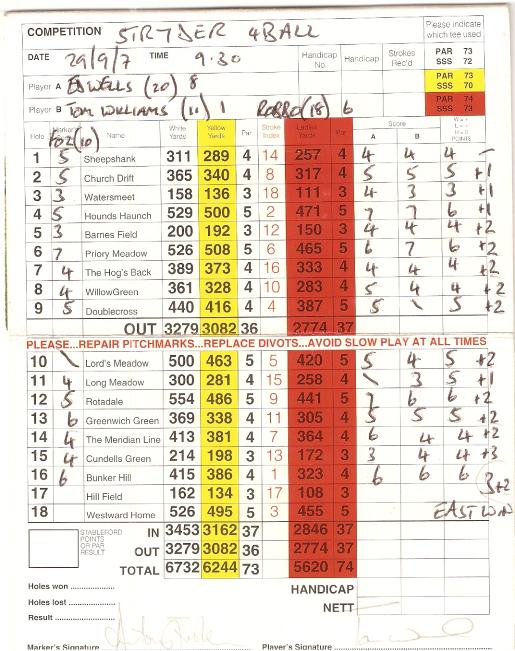 COMPETITION STRYDER 4BALL
Please indicate which tee used
DATE 29/9/7 TIME 9.30 Handicap No. Handicap Strokes Rec'd PAR 73 SSS 72
Player A ED WELLS (20) 8 PAR 73 SSS 70
Player B TOM WILLIAMS (11) 1 ROBBO (18) 6 PAR 74 SSS 73
Hole Marker's Name White Yards Yellow Yards Par Stroke Index Ladies Yards Par Score A B W = + L = – H = 0 POINTS
FOZ (10)
1 5 Sheepshank 311 289 4 14 257 4 4 4 4 –
2 5 Church Drift 365 340 4 8 317 4 5 5 5 +1
3 3 Watersmeet 158 136 3 18 111 3 4 3 3 +1
4 5 Hounds Haunch 529 500 5 2 471 5 7 7 6 +1
5 3 Barnes Field 200 192 3 12 150 3 4 4 4 +2
6 7 Priory Meadow 526 508 5 6 465 5 6 7 6 +2
7 4 The Hog's Back 389 373 4 16 333 4 4 4 4 +2
8 4 WillowGreen 361 328 4 10 283 4 5 4 4 +2
9 5 Doublecross 440 416 4 4 387 5 5 \ 5 +2
OUT 3279 3082 36 2774 37
PLEASE...REPAIR PITCHMARKS...REPLACE DIVOTS...AVOID SLOW PLAY AT ALL TIMES
10 \ Lord's Meadow 500 463 5 5 420 5 5 4 5 +2
11 4 Long Meadow 300 281 4 15 258 4 \ 3 5 +1
12 5 Rotadale 554 486 5 9 441 5 7 6 6 +2
13 6 Greenwich Green 369 338 4 11 305 4 5 5 5 +2
14 4 The Meridian Line 413 381 4 7 364 4 6 4 4 +2
15 4 Cundells Green 214 198 3 13 172 3 3 4 4 +3
16 6 Bunker Hill 415 386 4 1 323 4 6 6 6
17 Hill Field 162 134 3 17 108 3 3+2
18 Westward Home 526 495 5 3 455 5 EAST WIN
STABLEFORD POINTS OR PAR RESULT
IN 3453 3162 37 2846 37
OUT 3279 3082 36 2774 37
TOTAL 6732 6244 73 5620 74
Holes won .................... HANDICAP
Holes lost .................... NETT
Result ....................
Marker's Signature Player's Signature